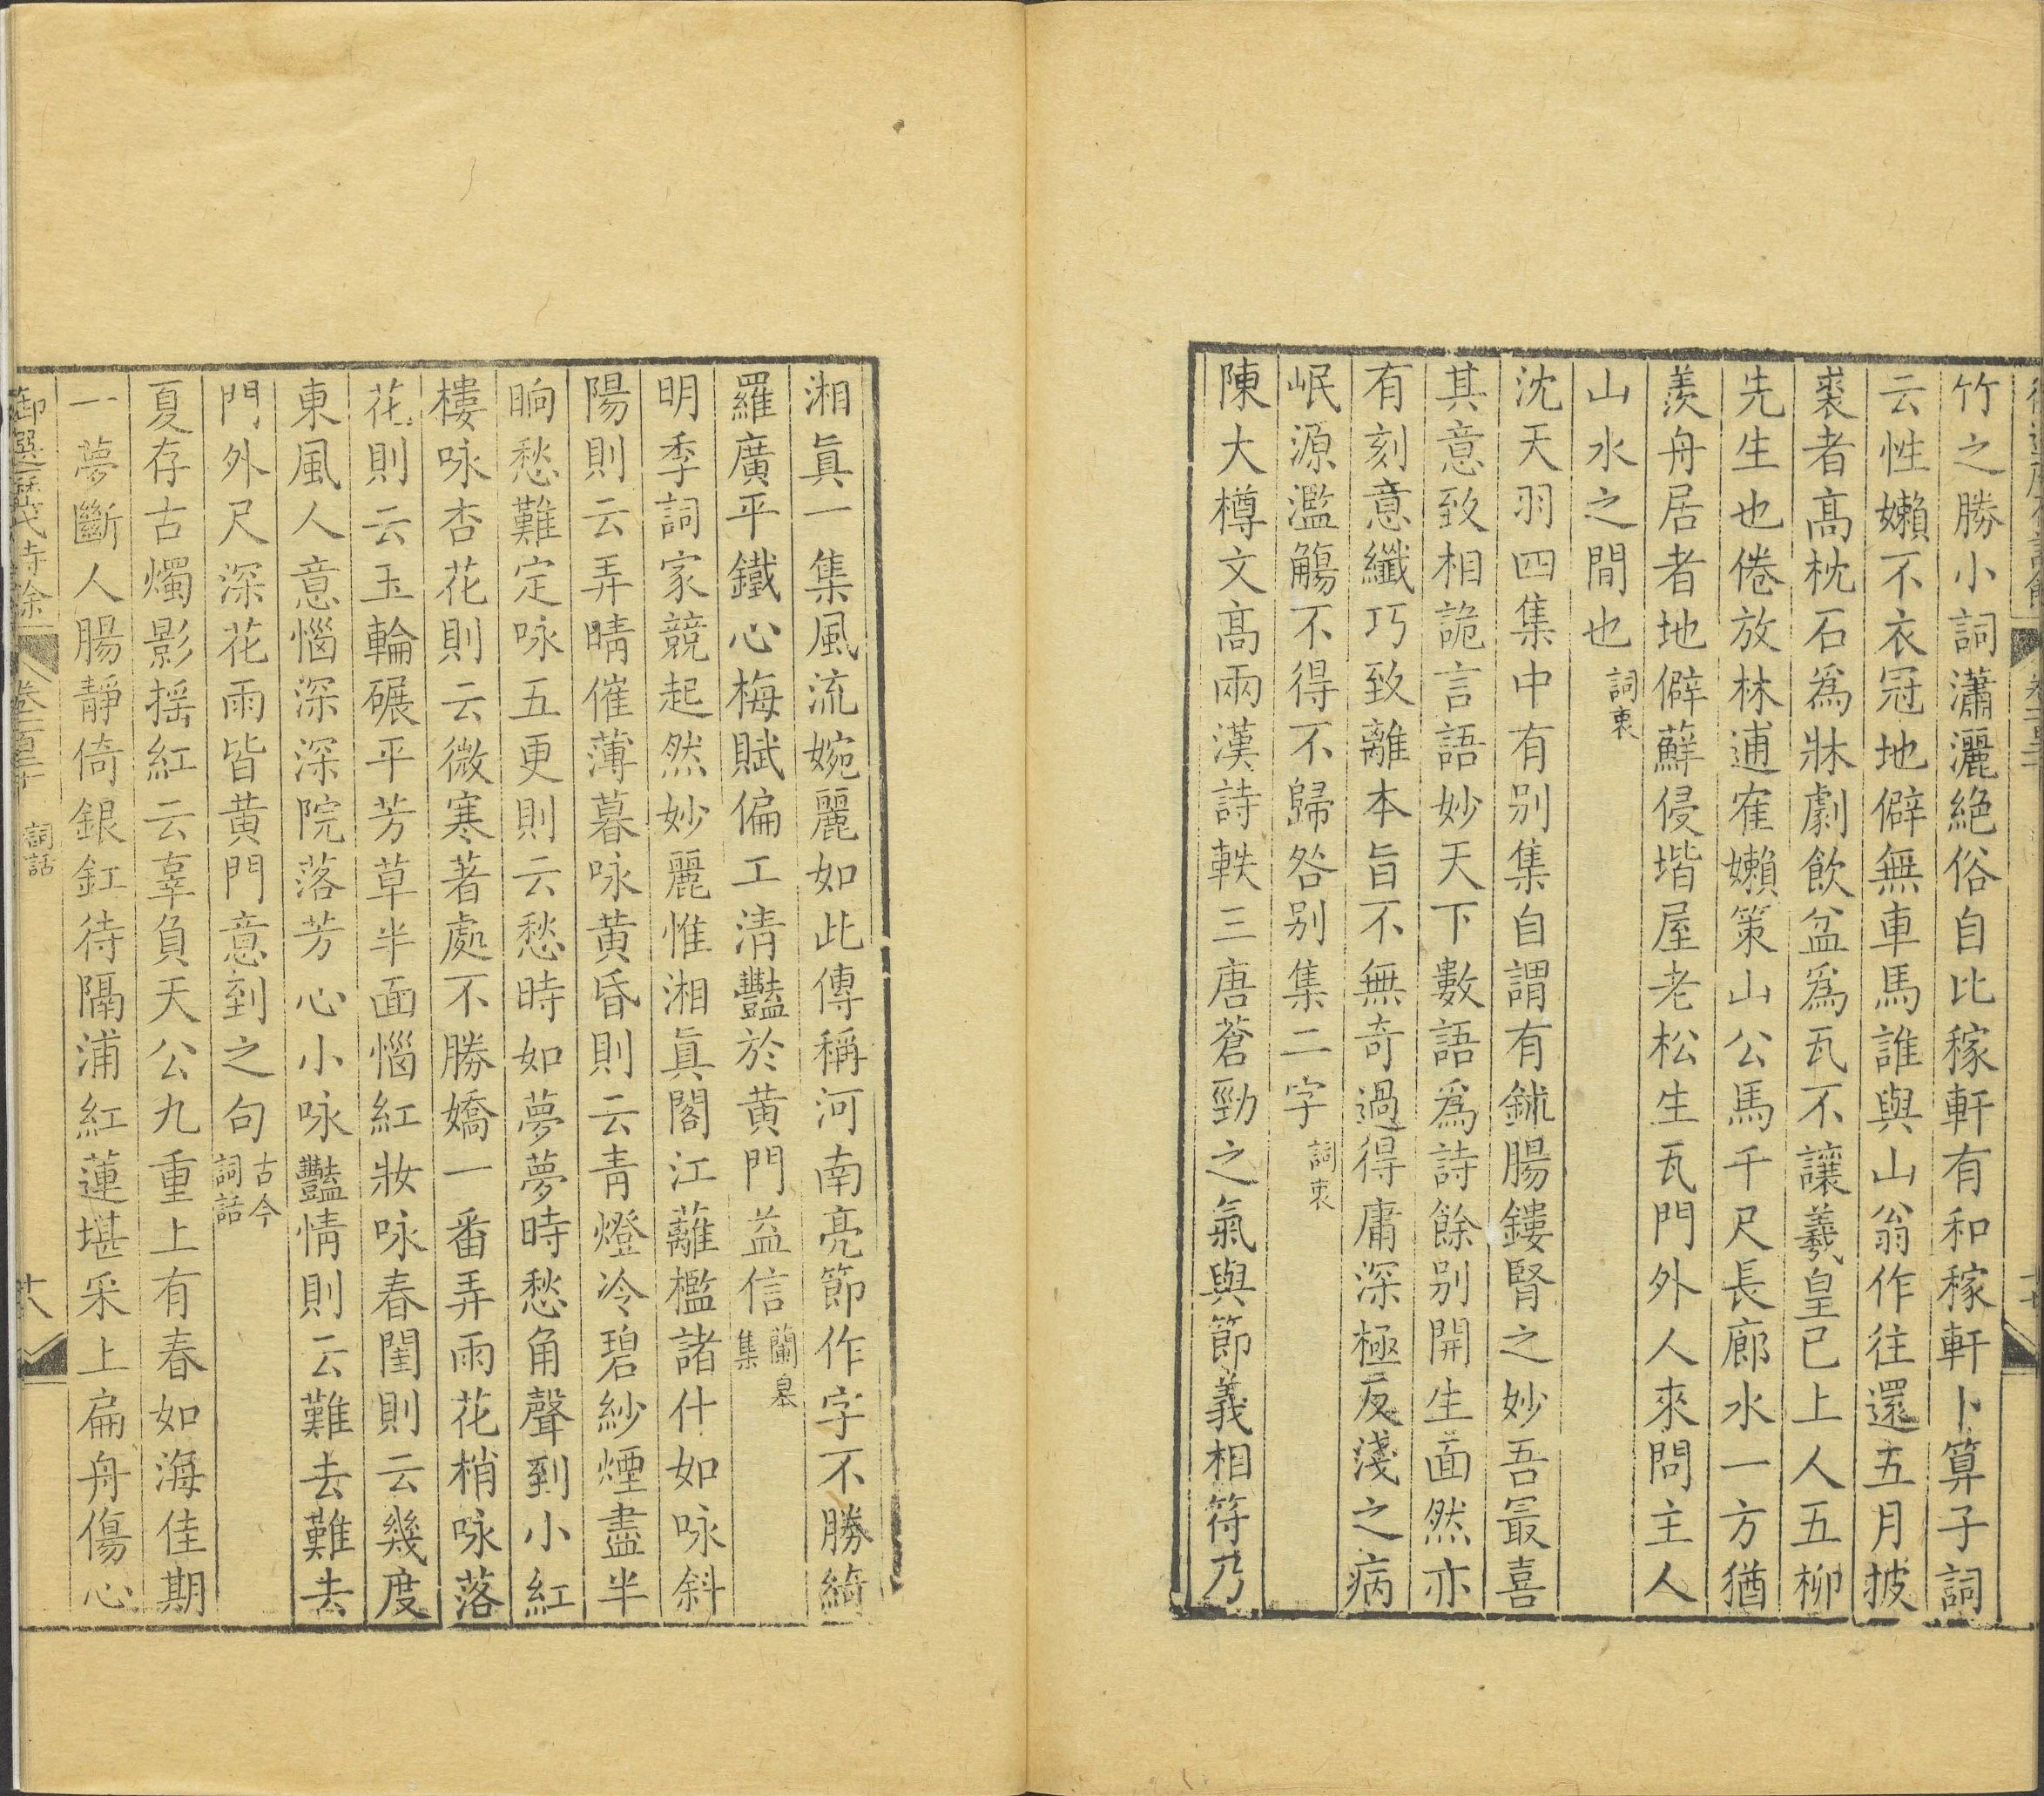 竹之勝小詞瀟灑絶俗自比稼軒有和稼軒卜算子詞
云性嬾不衣冠地僻無車馬誰與山翁作往還五月披
裘者髙枕石爲牀劇飲盆爲瓦不讓羲皇已上人五柳
先生也倦放林逋隺嬾策山公馬千尺長廊水一方猶
羨舟居者地僻蘚侵堦屋老松生瓦門外人來問主人
山水之間也詞衷
沈天羽四集中有别集自謂有鉥腸鏤腎之妙吾㝡喜
其意致相詭言語妙天下數語爲詩餘别開生面然亦
有刻意纖巧致離本旨不無竒過得庸深極反淺之病
岷源濫觴不得不歸咎别集二字詞衷
陳大樽文髙兩漢詩軼三唐蒼勁之氣與節義相符乃
湘眞一集風流婉麗如此傳稱河南亮節作字不勝綺
羅廣平鐵心梅賦偏工清豔於黄門益信蘭臯集
明季詞家競起然妙麗惟湘眞閣江蘺檻諸什如咏斜
陽則云弄晴催薄暮咏黄昏則云青燈冷碧紗煙盡半
晌愁難定咏五更則云愁時如夢夢時愁角聲到小紅
樓咏杏花則云微寒著處不勝嬌一番弄雨花梢咏落
花則云玉輪碾平芳草半面惱紅妝咏春閨則云幾度
東風人意惱深深院落芳心小咏豔情則云難去難去
門外尺深花雨皆黄門意到之句古今詞話
夏存古燭影揺紅云辜負天公九重上有春如海佳期
一夢斷人腸靜倚銀釭待隔浦紅蓮堪采上扁舟傷心
御選歷代詩餘 卷一百二十 詞話 十八